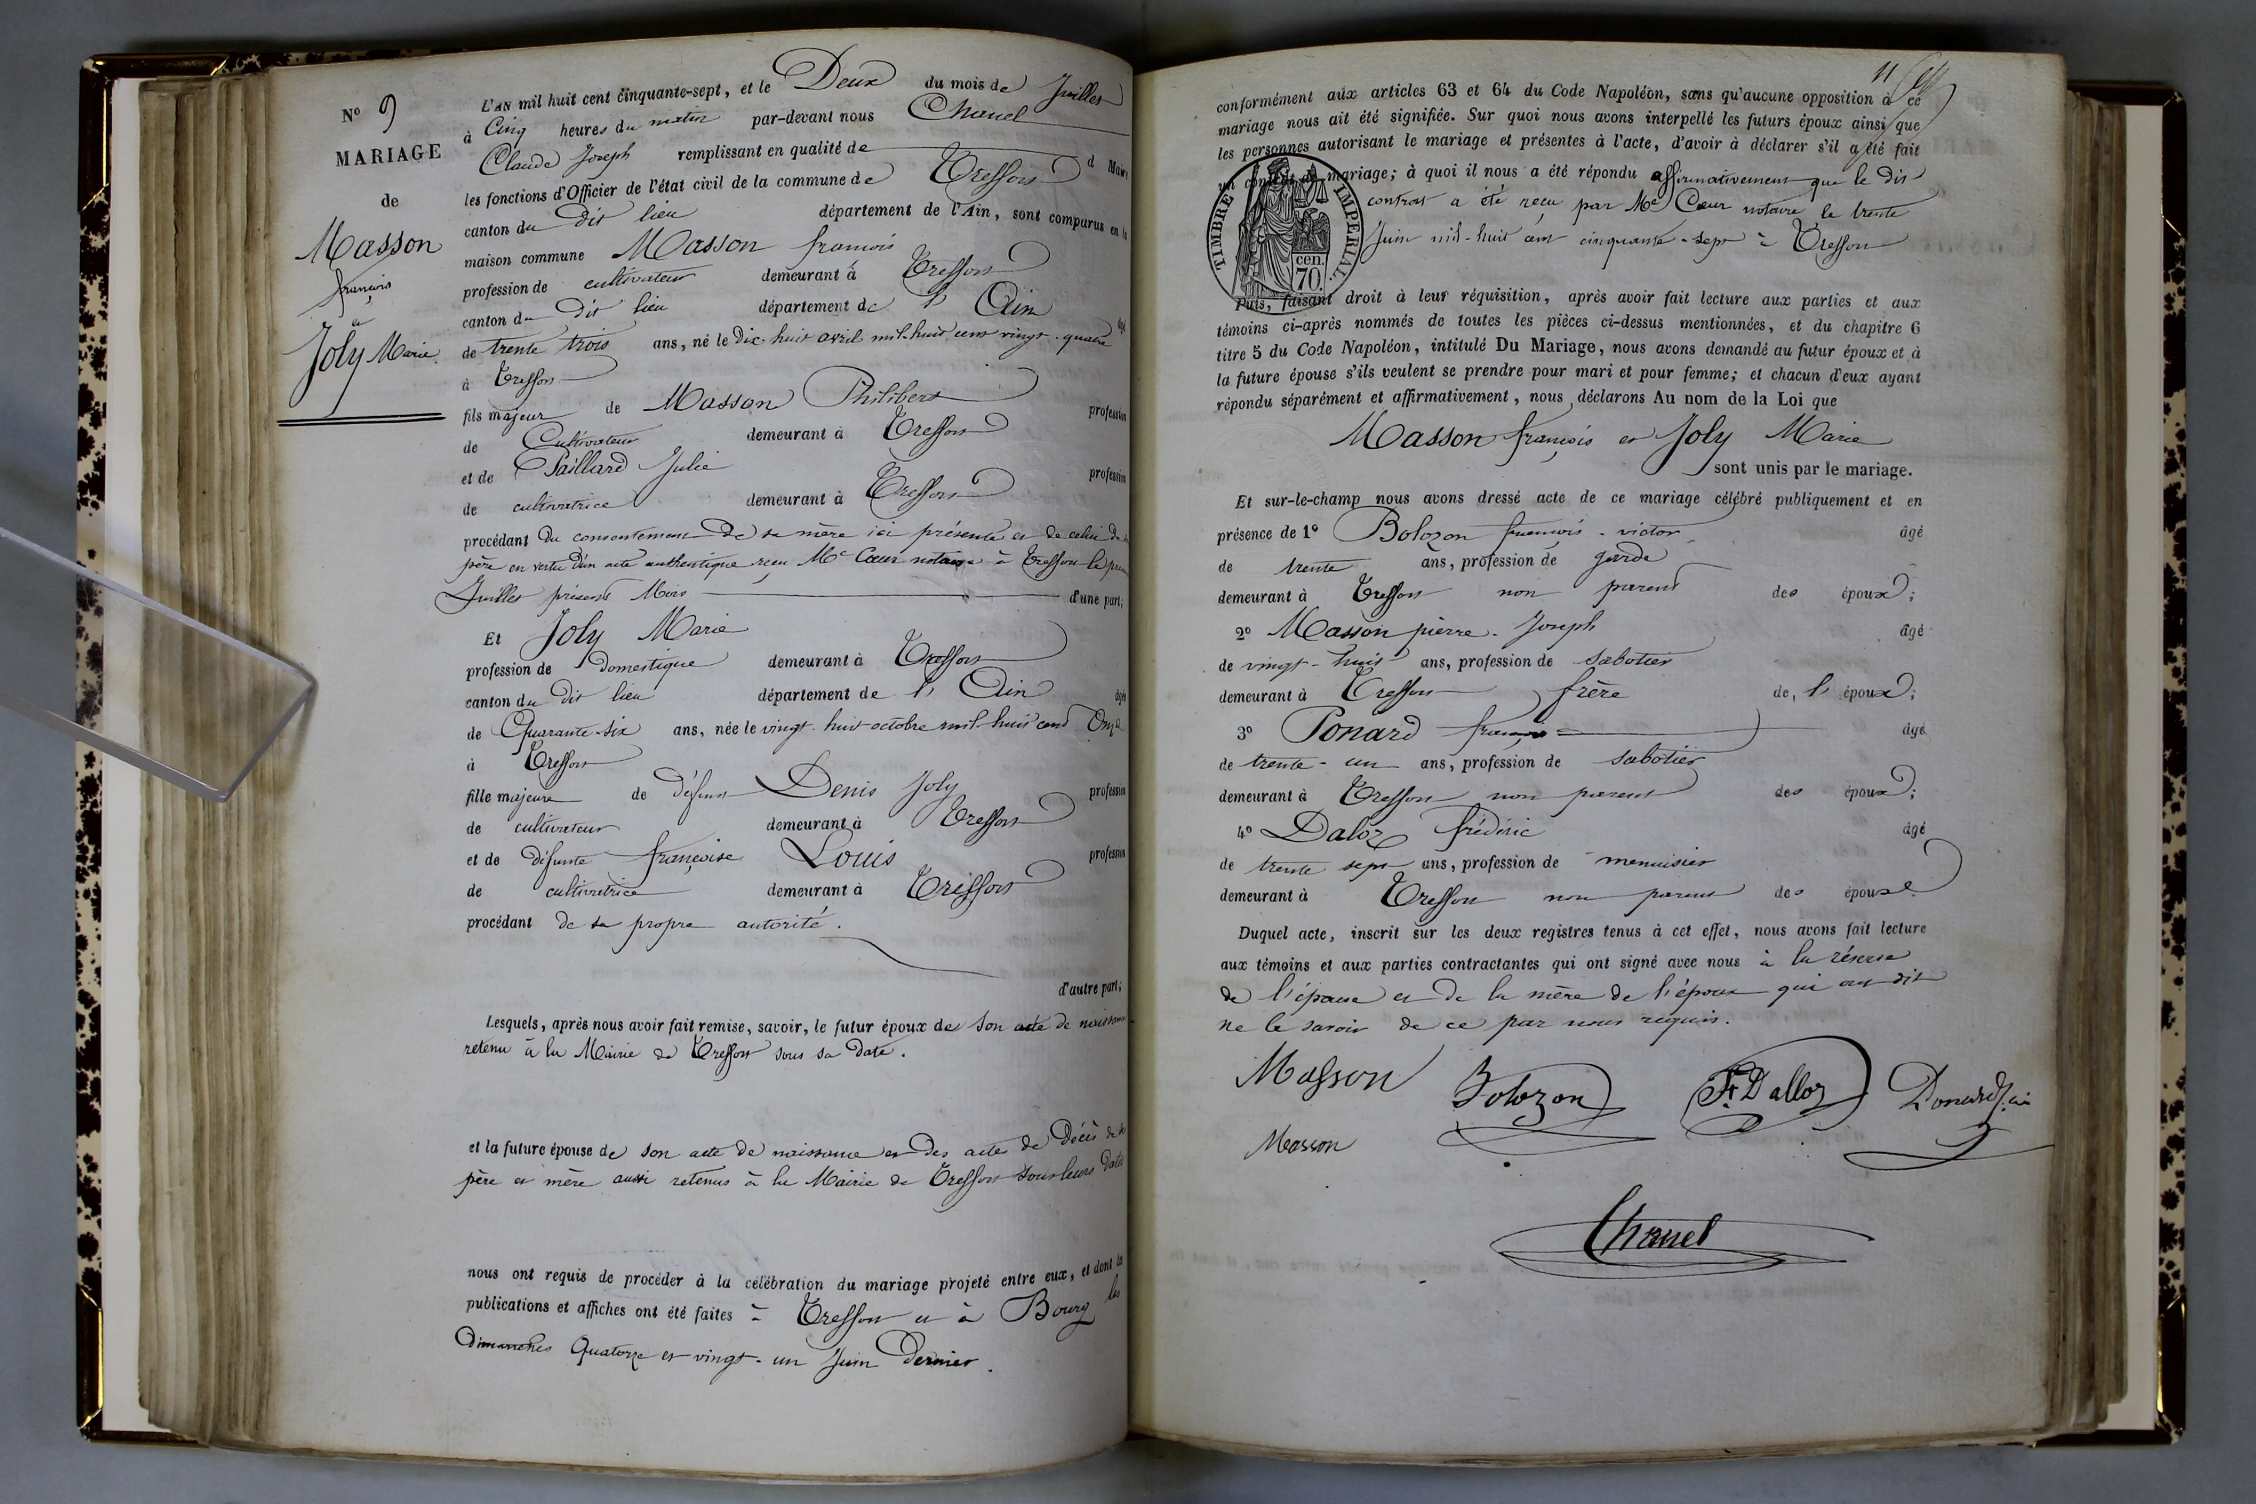 N° 9
MARIAGE
de
Masson
françois
et
Joly Marie
L'AN mil huit cent cinquante-sept, et le Deux du mois de Juillet
à Cinq heures du matin par-devant nous Chanel
Claude Joseph remplissant en qualité de d Maire
les fonctions d'Officier de l'état civil de la commune de Treffort
canton du dit lieu département de l'Ain, sont comparus en la
maison commune Masson françois
profession de cultivateur demeurant à Treffort
canton du dit lieu département de l' Ain âgé
de trente trois ans, né le Dix-huit avril mil-huit cent vingt-quatre
à Treffort
fils majeur de Masson Philibert profession
de Cultivateur demeurant à Treffort
et de Paillard Julie profession
de cultivatrice demeurant à Treffort
procédant du consentement de sa mère ici présente et de celui de
père en vertu d'un acte authentique reçu Me Cœur notaire à Treffort le
Juillet présent Mois d'une part;
Et Joly Marie
profession de domestique demeurant à Treffort
canton du dit lieu département de l' Ain âgée
de Quarante-six ans, née le vingt-huit octobre mil-huit cent Onze
à Treffort
fille majeure de défunt Denis Joly profession
de cultivateur demeurant à Treffort
et de défunte françoise Louis profession
de cultivatrice demeurant à Treffort
procédant de sa propre autorité.
d'autre part;
Lesquels, après nous avoir fait remise, savoir, le futur époux de son acte de naissance
retenu à la Mairie de Treffort sous sa date.
et la future épouse de son acte de naissance et des actes de décès de
père et mère aussi retenus à la Mairie de Treffort sous leurs dates
nous ont requis de procéder à la célébration du mariage projeté entre eux, et dont les
publications et affiches ont été faites à Treffort et à Bourg les
Dimanches Quatorze et vingt-un Juin Dernier.
11
conformément aux articles 63 et 64 du Code Napoléon, sans qu'aucune opposition à ce
mariage nous ait été signifiée. Sur quoi nous avons interpellé les futurs époux ainsi que
les personnes autorisant le mariage et présentes à l'acte, d'avoir à déclarer s'il a été fait
un contrat de mariage; à quoi il nous a été répondu affirmativement que le dit
contrat a été reçu par Me Cœur notaire le trente
Juin mil-huit cent cinquante-sept à Treffort
TIMBRE IMPERIAL
cen.
70.
Puis, faisant droit à leur réquisition, après avoir fait lecture aux parties et aux
témoins ci-après nommés de toutes les pièces ci-dessus mentionnées, et du chapitre 6
titre 5 du Code Napoléon, intitulé Du Mariage, nous avons demandé au futur époux et à
la future épouse s'ils veulent se prendre pour mari et pour femme; et chacun d'eux ayant
répondu séparément et affirmativement, nous déclarons Au nom de la Loi que
Masson françois et Joly Marie
sont unis par le mariage.
Et sur-le-champ nous avons dressé acte de ce mariage célébré publiquement et en
présence de 1° Bolozon francois-victor âgé
de trente ans, profession de garde
demeurant à Treffort non parent des époux;
2° Masson pierre-Joseph âgé
de vingt-huit ans, profession de sabotier
demeurant à Treffort frère de l' époux;
3° Ponard françois âgé
de trente-un ans, profession de sabotier
demeurant à Treffort non parent des époux;
4° Daloz frédéric âgé
de trente sept ans, profession de menuisier
demeurant à Treffort non parent des époux
Duquel acte, inscrit sur les deux registres tenus à cet effet, nous avons fait lecture
aux témoins et aux parties contractantes qui ont signé avec nous à la réserve
de l'épouse et de la mère de l'époux qui ont dit
ne le savoir de ce par nous requis.
Masson Bolozon Fr Dalloz
Masson
Chanel